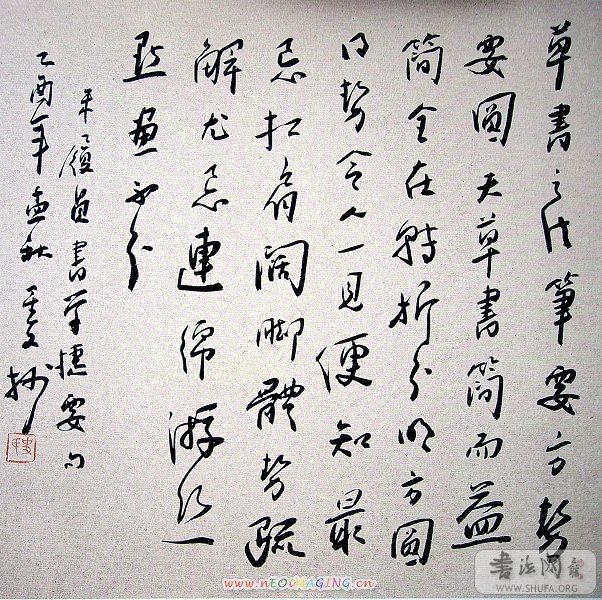 草書之法筆要方勢
要圓夫草書簡而益
簡全在轉折分明方圓
得勢令人一見便知最
忌扛肩闊腳體勢疏
解尤忌連綿游絲一
點畫不分
朱履貞書學捷要句
乙酉年孟秋抄
www.nEOiMAGING.cn
书法网
WWW.SHUFA.ORG